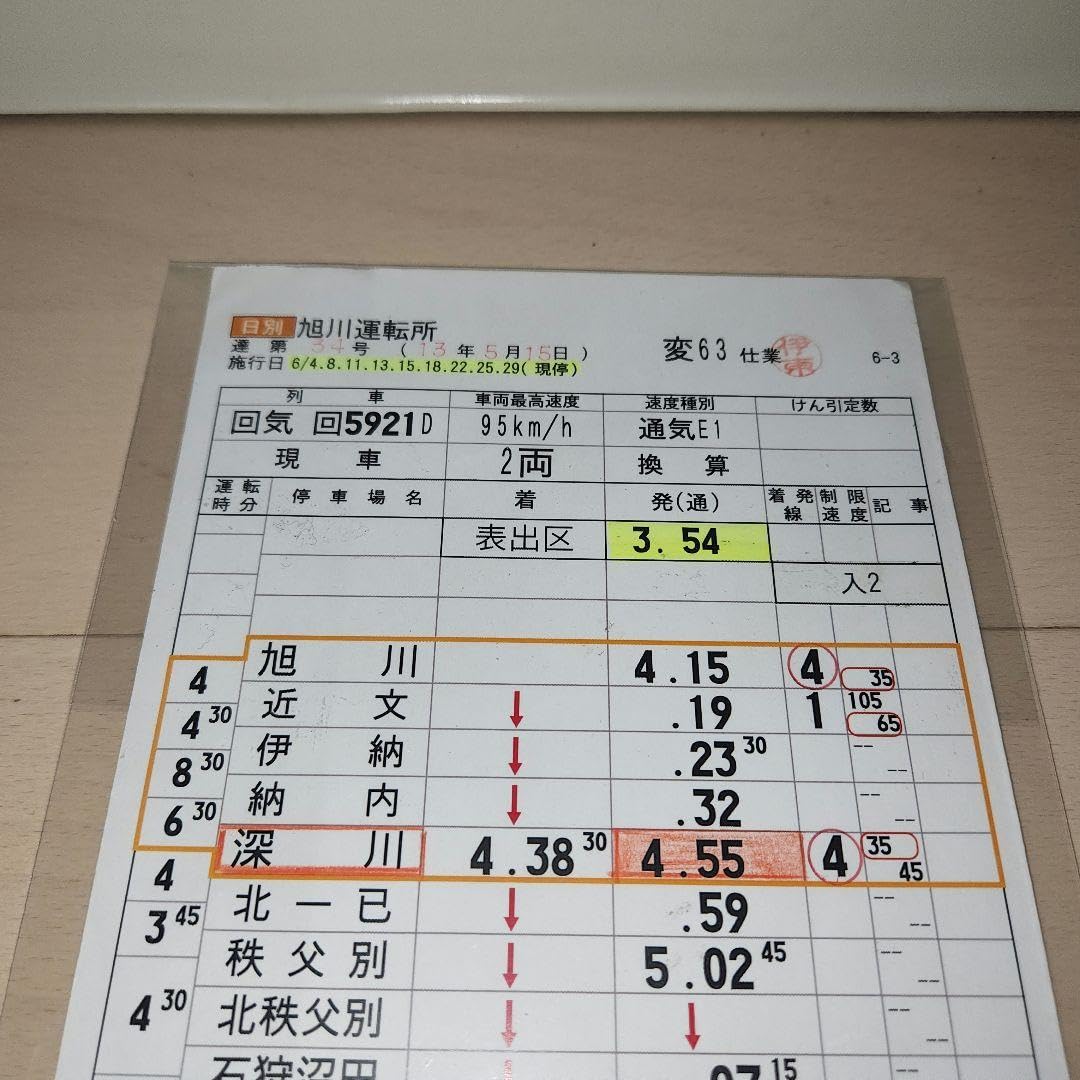 日別 旭川運転所
達 第 34 号 ( 13 年 5 月 15 日 ) 変63 仕業 伊東 6-3
施行日 6/4.8.11.13.15.18.22.25.29( 現停)
列 車 車両最高速度 速度種別 けん引定数
回気 回5921D 95km/h 通気E1
現 車 2両 換 算
運転時分 停車場名 着 発(通) 着発線 制限速度 記 事
表出区 3.54
入2
旭 川 4.15 4 35
4
近 文 ↓ .19 1 105 65
4 30
伊 納 ↓ .23 30 -- --
8 30
納 内 ↓ .32 -- --
6 30
深 川 4.38 30 4.55 4 35 45
4
北 一 已 ↓ .59 -- --
3 45
秩 父 別 ↓ 5.02 45 -- --
4 30
北秩父別 ↓ ↓ -- --
石狩沼田 ↓ .07 15